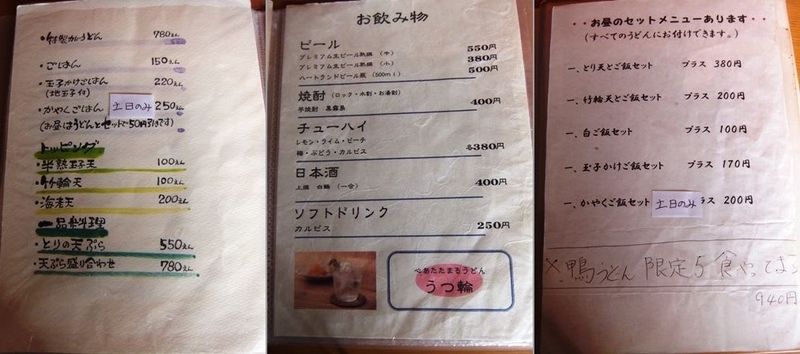 ・特製カレーうどん 780えん
・ごはん 150えん
・玉子かけごはん 220えん
(地玉子付)
・かやくごはん 土日のみ 250えん
(お昼はうどんとセットで50円引きです)
トッピング
・半熟玉子天 100えん
・竹輪天 100えん
・海老天 200えん
一品料理
・とりの天ぷら 550えん
・天ぷら盛り合わせ 780えん
お飲み物
ビール
プレミアム生ビール熟撰 (中) 550円
プレミアム生ビール熟撰 (小) 380円
ハートランドビール瓶 (500ml) 500円
焼酎 (ロック・水割・お湯割)
芋焼酎 黒霧島 400円
チューハイ
レモン・ライム・ピーチ
梅・ぶどう・カルピス 各380円
日本酒
上撰 白鶴 (一合) 400円
ソフトドリンク
カルピス 250円
心あたたまるうどん
うつ輪
・・お昼のセットメニューあります・・
(すべてのうどんにお付けできます。)
一、とり天とご飯セット プラス 380円
一、竹輪天とご飯セット プラス 200円
一、白ご飯セット プラス 100円
一、玉子かけご飯セット プラス 170円
一、かやくご飯セット 土日のみ ラス 200円
※鴨うどん 限定5食やってます
940円